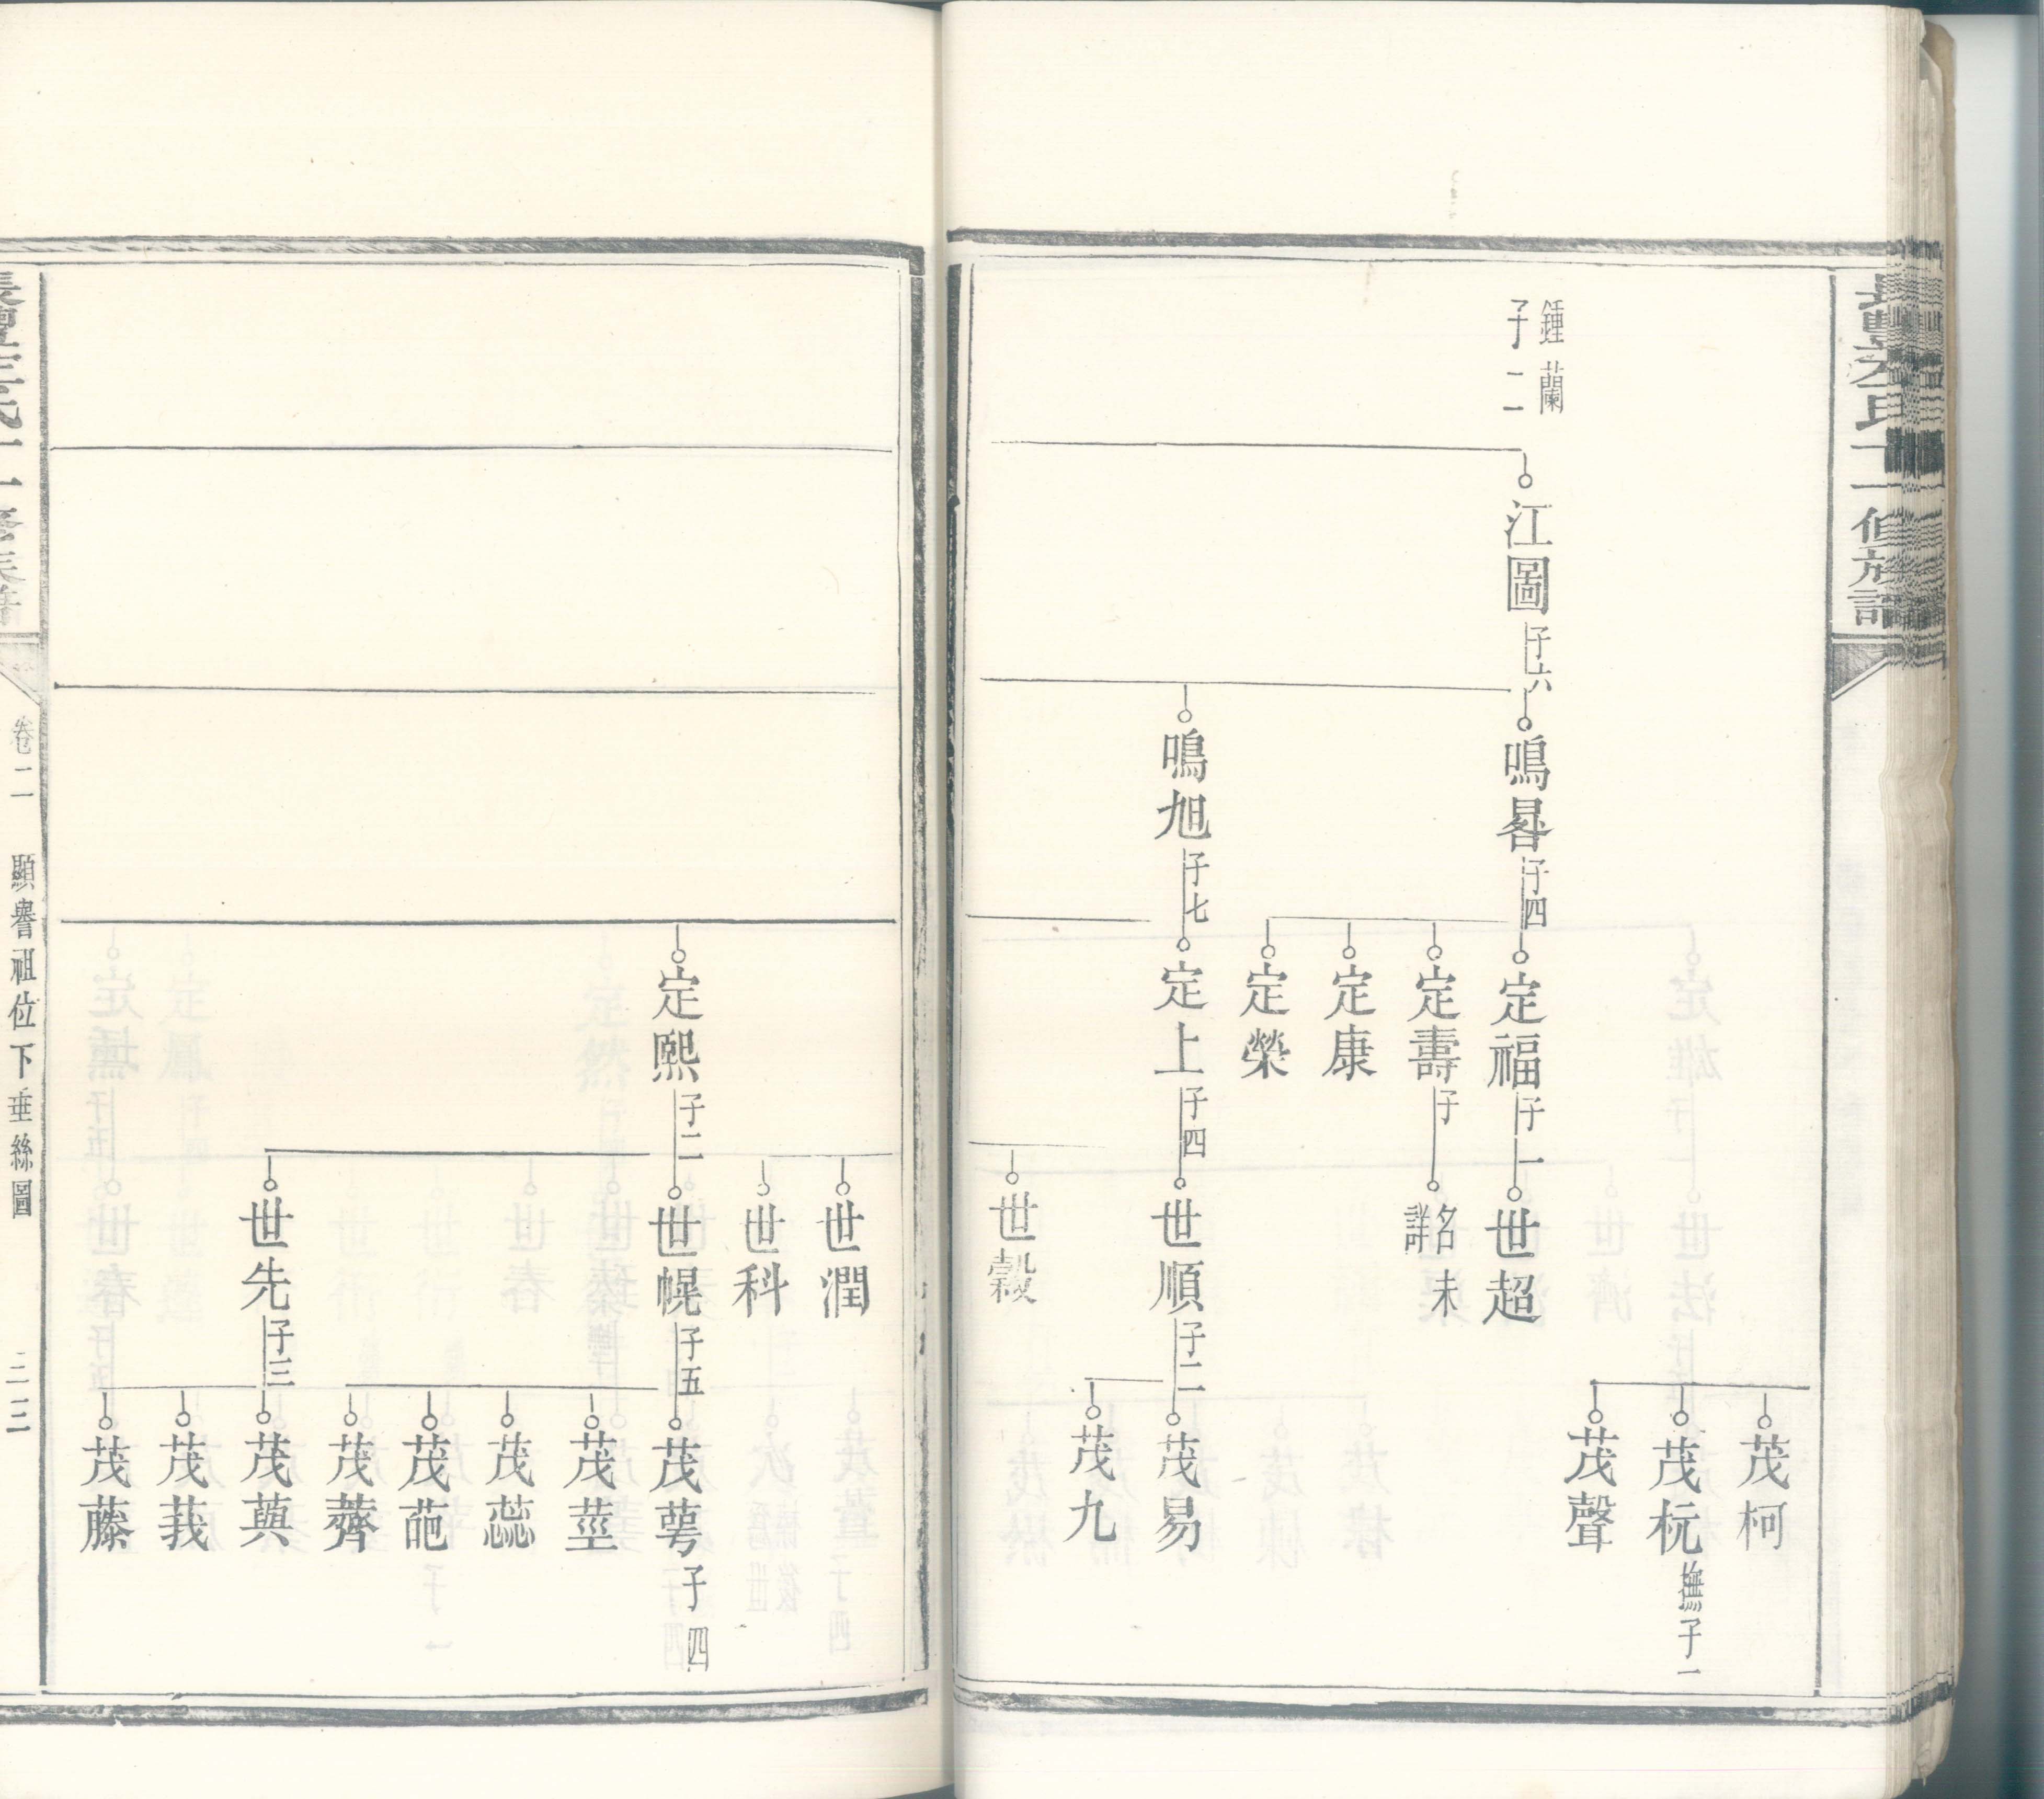 鍾蘭
子二
江圖子六
鳴晷子四
鳴旭子七
定福子一
定壽子
定康
定榮
定上子四
世超
名未
詳
世順子二
世穀
茂柯
茂杬撫子一
茂聲
茂易
茂九
定熙子二
世潤
世科
世幌子五
世先子三
茂萼子四
茂莖
茂蕊
茂葩
茂薺
茂萸
茂莪
茂藤
卷二
顯譽祖位下垂絲圖
二三